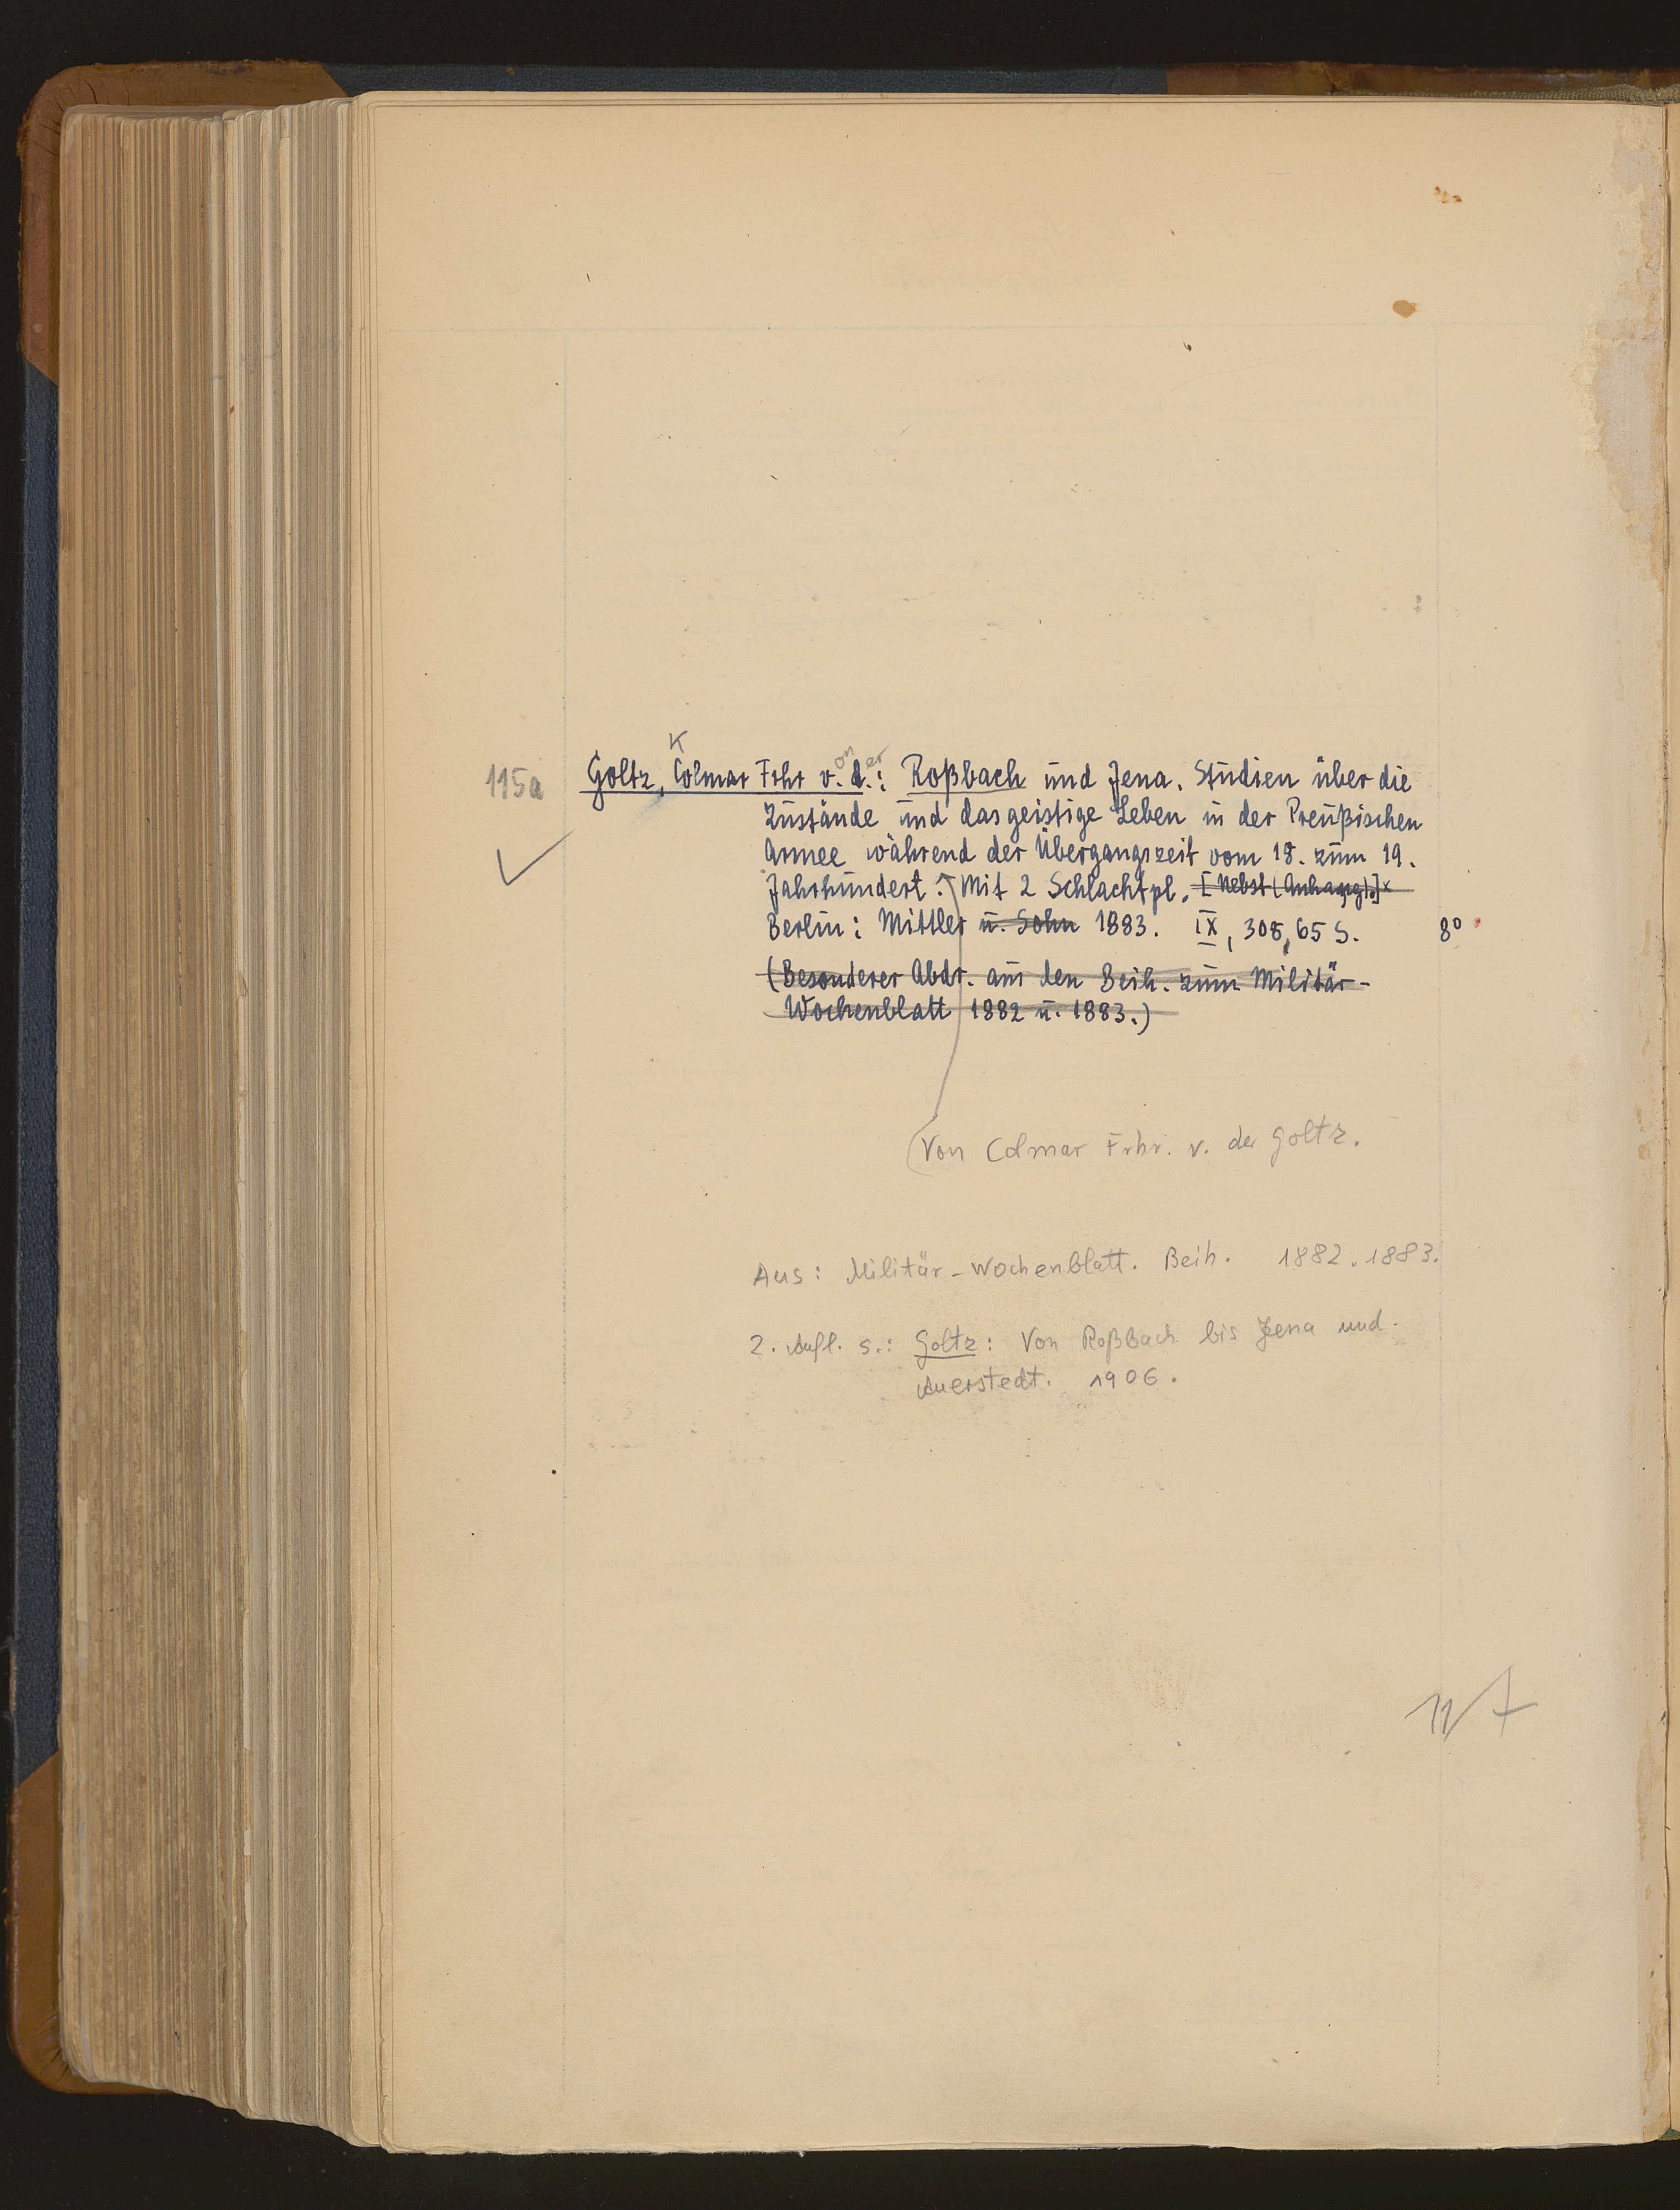 K on er
115a Goltz, Colmar Frhr v. d.: Roßbach und Jena. Studien über die
Zustände und das geistige Leben in der Preußischen
Armee während der Übergangszeit vom 18. zum 19.
Jahrhundert. Mit 2 Schlachtpl. [Nebst (Anhang).]
Berlin: Mittler u. Sohn 1883. IX, 308, 65 S. 8°
(Besonderer Abdr. aus den Beih. zum Militär-
Wochenblatt 1882 u. 1883.)
(Von Colmar Frhr. v. der Goltz.
Aus: Militär-Wochenblatt. Beih. 1882. 1883.
2. Aufl. s.: Goltz: Von Roßbach bis Jena und
Auerstedt. 1906.